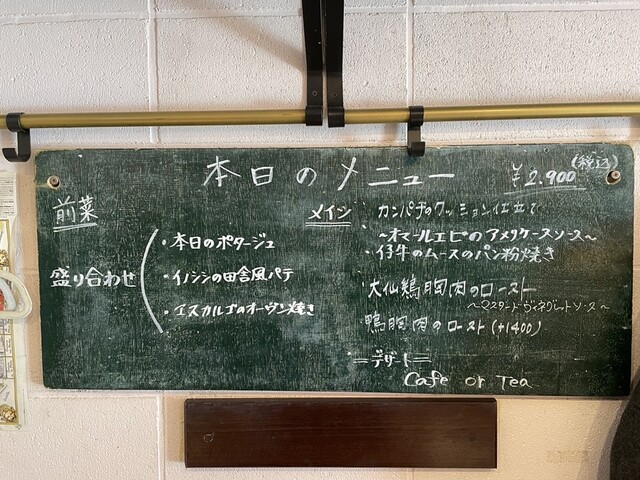 本日のメニュー
¥2.900
(税込)
前菜
盛り合わせ
・本日のポタージュ
・イノシシの田舎風パテ
・エスカルゴのオーヴン焼き
メイン
・カンパチのクッション仕立て
〜オマールエビのアメリケーヌソース〜
・仔牛のムースのパン粉焼き
・大仙鶏胸肉のロースト
〜マスタードヴィネグレットソース〜
・鴨胸肉のロースト(+1400)
=デザート=
Cafe or Tea